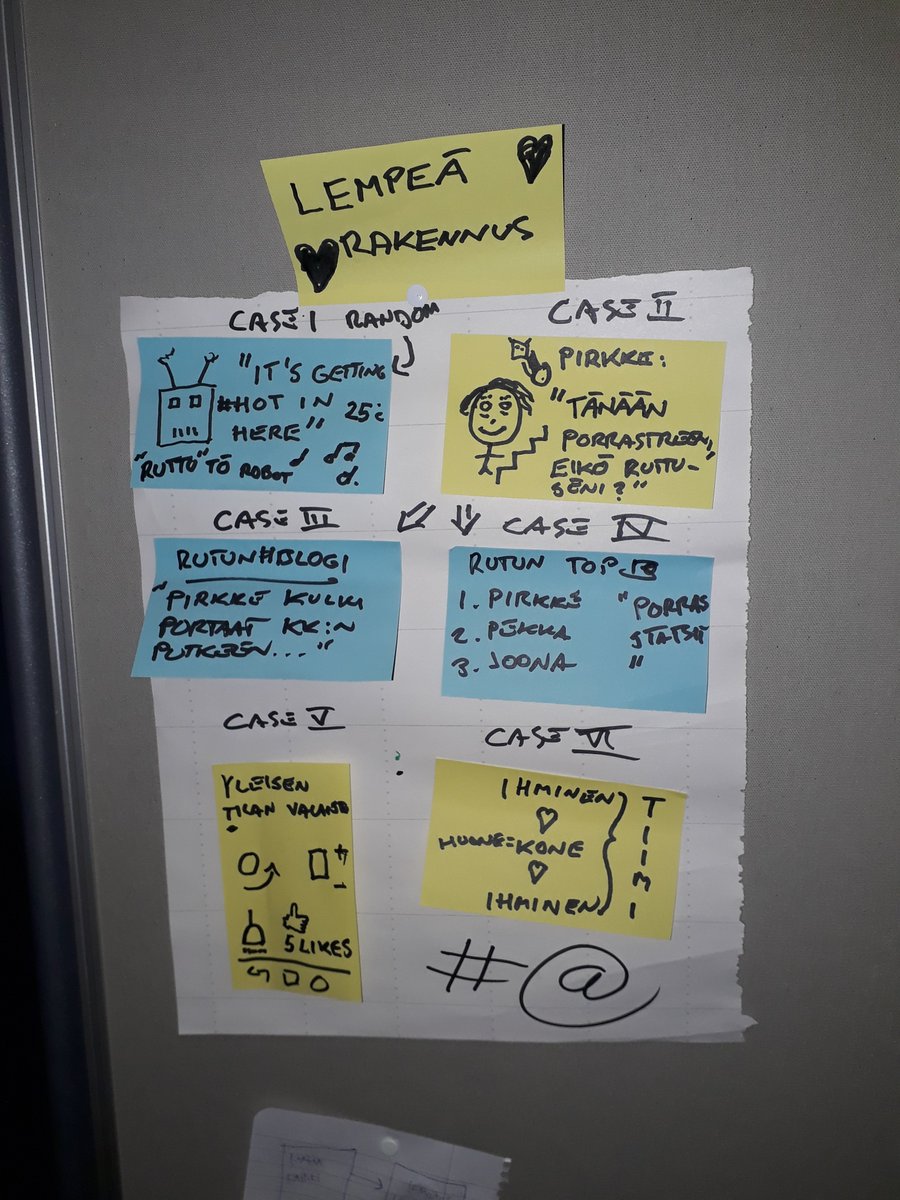 LEMPEÄ
RAKENNUS
CASE I RANDOM
"IT'S GETTING
#HOT IN
HERE" 25°C
"RUTTU"TÖ ROBOT
CASE II
PIRKKE:
"TÄNÄÄN
PORRASTREEN,
EIKÖ RUTTU-
SENI?"
CASE III
RUTUN#BLOGI
"PIRKKE KULKI
PORTAAT KK:N
PUTKEEN..."
CASE IV
RUTUN TOP
1. PIRKKE "PORRAS
2. PEKKA STATSIT
3. JOONA "
CASE V
YLEISEN
TILAN
5 LIKES
CASE VI
IHMINEN
HUONE=KONE
IHMINEN
TIIMI
# @